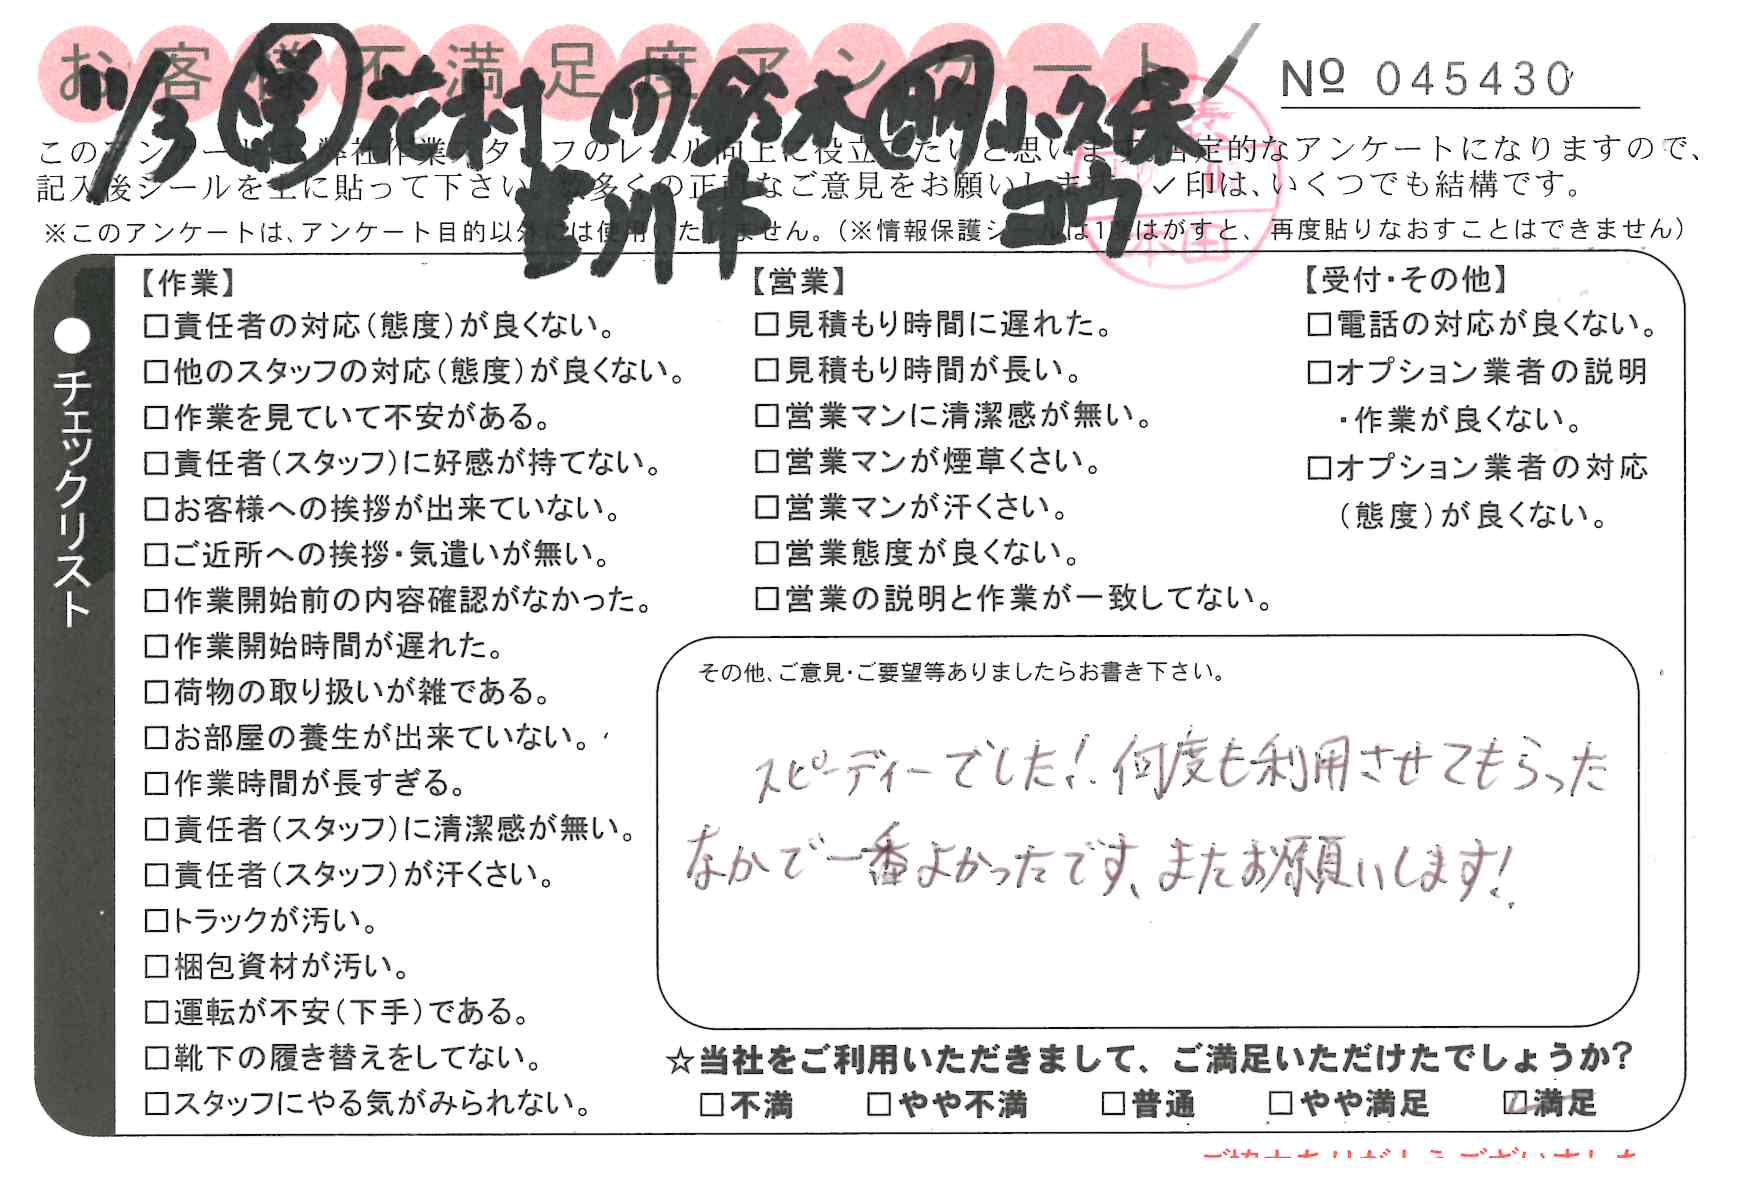 お客様不満足度アンケート
№ 045430
11/3 花村 鈴木 小久保
豊川市 コウ
このアンケートは、弊社作業スタッフのレベル向上に役立てたいと思います。否定的なアンケートになりますので、
記入後シールを上に貼って下さい。数多くの正直なご意見をお願いします。✓印は、いくつでも結構です。
※このアンケートは、アンケート目的以外には使用いたしません。（※情報保護シールは1度はがすと、再度貼りなおすことはできません）
●チェックリスト
【作業】
□責任者の対応（態度）が良くない。
□他のスタッフの対応（態度）が良くない。
□作業を見ていて不安がある。
□責任者（スタッフ）に好感が持てない。
□お客様への挨拶が出来ていない。
□ご近所への挨拶・気遣いが無い。
□作業開始前の内容確認がなかった。
□作業開始時間が遅れた。
□荷物の取り扱いが雑である。
□お部屋の養生が出来ていない。
□作業時間が長すぎる。
□責任者（スタッフ）に清潔感が無い。
□責任者（スタッフ）が汗くさい。
□トラックが汚い。
□梱包資材が汚い。
□運転が不安（下手）である。
□靴下の履き替えをしてない。
□スタッフにやる気がみられない。
【営業】
□見積もり時間に遅れた。
□見積もり時間が長い。
□営業マンに清潔感が無い。
□営業マンが煙草くさい。
□営業マンが汗くさい。
□営業態度が良くない。
□営業の説明と作業が一致してない。
【受付・その他】
□電話の対応が良くない。
□オプション業者の説明
・作業が良くない。
□オプション業者の対応
（態度）が良くない。
その他、ご意見・ご要望等ありましたらお書き下さい。
スピーディーでした！何度も利用させてもらった
なかで一番よかったです、またお願いします！
☆当社をご利用いただきまして、ご満足いただけたでしょうか？
□不満 □やや不満 □普通 □やや満足 ☑満足
ご協力ありがとうございました